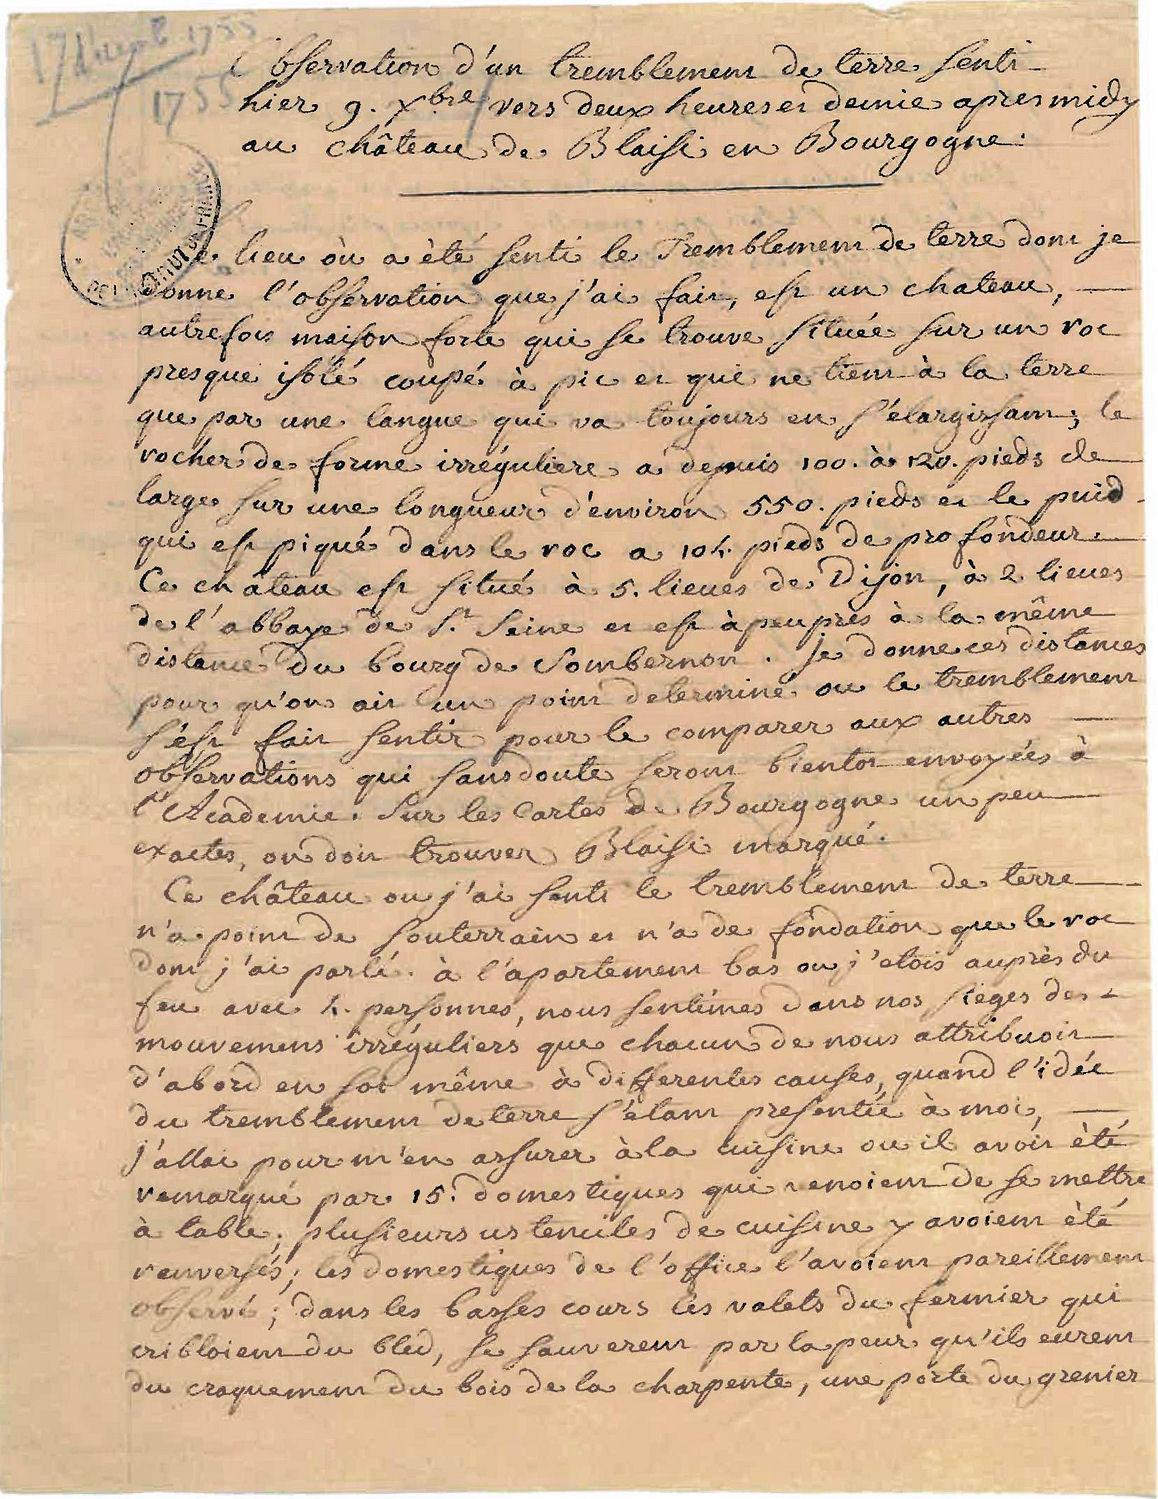 17 Xbre 1755
1755
Observation d'un tremblement de terre senti
hier 9. Xbre vers deux heures et demie apres midy
au château de Blaisi en Bourgogne:
Le lieu où a été senti le Tremblement de terre dont je
donne l'observation que j'ai fait, est un chateau,
autrefois maison forte qui se trouve située sur un roc
presque isolé coupé à pic et qui ne tient à la terre
que par une langue qui va toujours en s'élargissant; le
rocher de forme irréguliere a depuis 100. à 120. pieds de
large sur une longueur d'environ 550. pieds et le puid
qui est piqué dans le roc a 104. pieds de profondeur.
Ce château est situé à 5. lieues de Dijon, à 2 lieues
de l'abbaye de St. Seine et est àpeuprès à la même
distance du bourg de Sombernon. Je donne ces distances
pour qu'on ait un point determiné ou le tremblement
s'est fait sentir pour le comparer aux autres
observations qui sans doute seront bientot envoyées à
l'Academie. Sur les Cartes de Bourgogne un peu
exactes, on doit trouver Blaisi marqué.
Ce château ou j'ai senti le tremblement de terre
n'a point de souterrain et n'a de fondation que le roc
dont j'ai parlé. à l'apartement bas ou j'etois auprès du
feu avec 4. personnes, nous sentimes dans nos sieges des
mouvemens irréguliers que chacun de nous attribuoit
d'abord en soi même à differentes causes, quand l'idée
du tremblement de terre s'étant presentée à moi,
j'allai pour m'en assurer à la cuisine ou il avoit été
remarqué par 15. domestiques qui venoient de se mettre
à table; plusieurs ustenciles de cuisine y avoient été
renversés; les domestiques de l'office l'avoient pareillement
observé; dans les basses cours les valets du fermier qui
cribloient du bled, se sauverent par la peur qu'ils eurent
du craquement du bois de la charpente, une porte du grenier